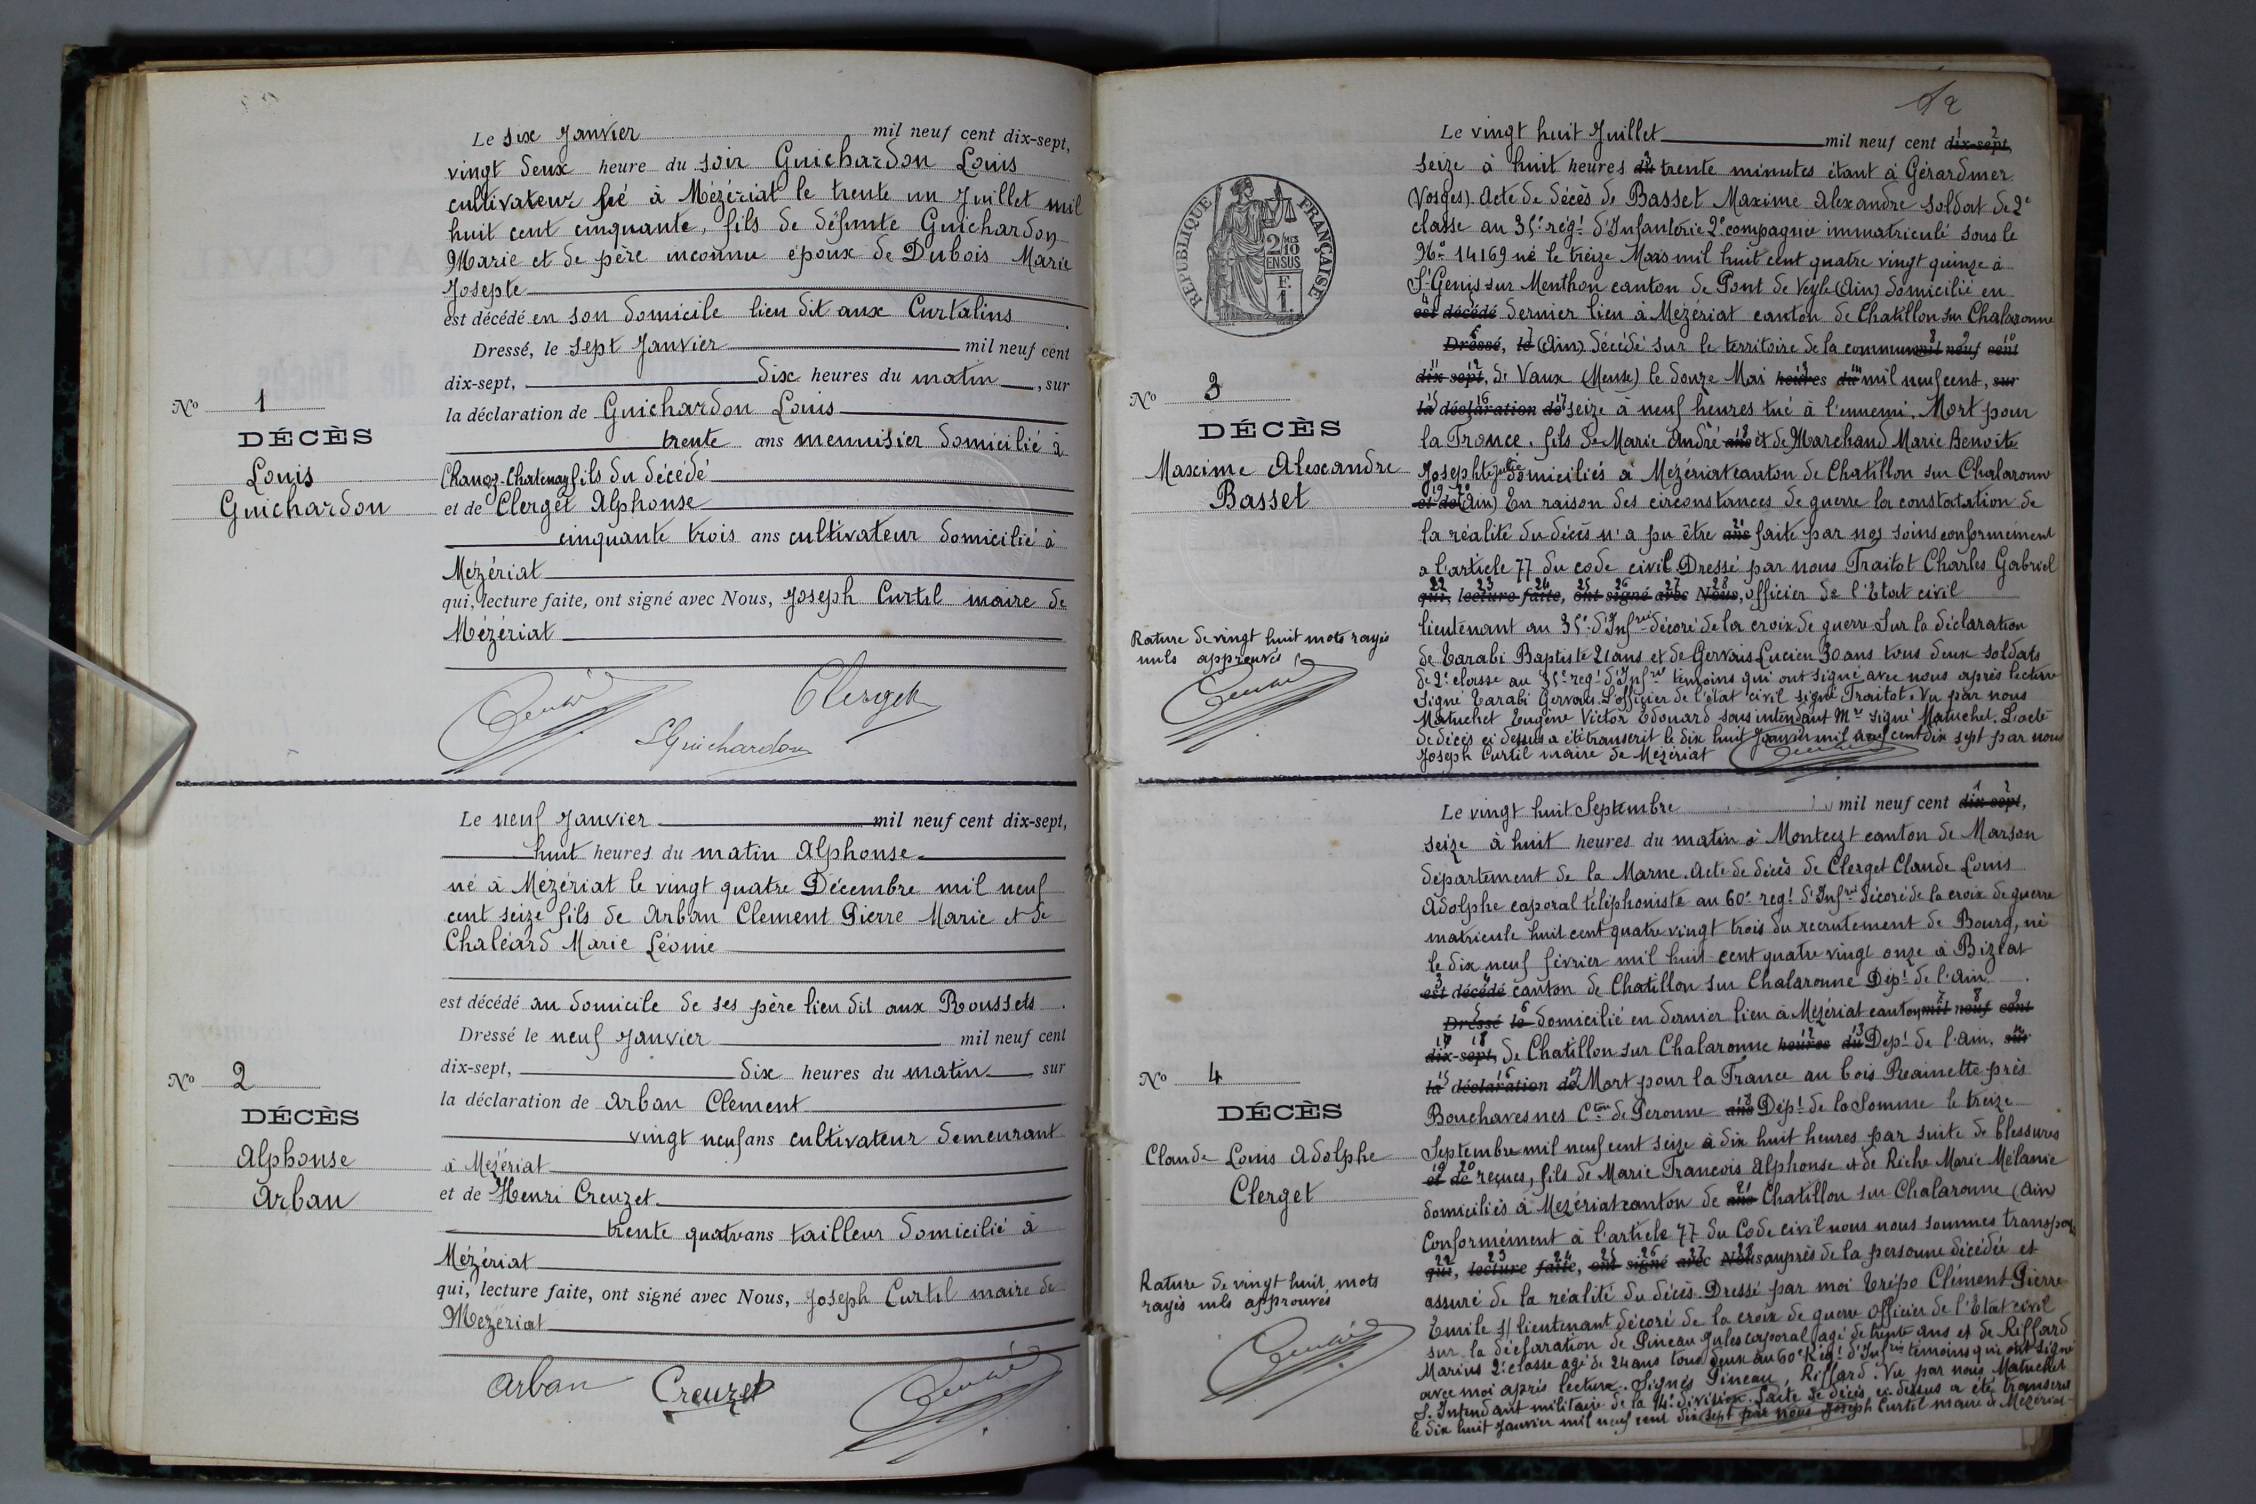 Le six Janvier mil neuf cent dix-sept,
vingt deux heure du soir Guichardon Louis
cultivateur né à Mézériat le trente un Juillet mil
huit cent cinquante, fils de défunte Guichardon
Marie et de père inconnu époux de Dubois Marie
Josepte
est décédé en son domicile lieu dit aux Curtalins.
Dressé, le sept Janvier mil neuf cent
dix-sept, dix heures du matin, sur
la déclaration de Guichardon Louis
trente ans menuisier domicilié à
Chanoz-Chatenay fils du décédé
et de Clerget Alphonse
cinquante trois ans cultivateur domicilié à
Mézériat
qui, lecture faite, ont signé avec Nous, Joseph Curtil maire de
Mézériat
Nº 1
DÉCÈS
Louis
Guichardon
Clerget
L Guichardon
Le neuf Janvier mil neuf cent dix-sept,
huit heures du matin Alphonse
né à Mézériat le vingt quatre Décembre mil neuf
cent seize fils de Arban Clement Pierre Marie et de
Chaléard Marie Léonie
est décédé au domicile de ses père lieu dit aux Roussets.
Dressé le neuf Janvier mil neuf cent
dix-sept, dix heures du matin, sur
la déclaration de Arban Clement
vingt neuf ans cultivateur demeurant
à Mézériat
et de Henri Creuzet
trente quatre ans tailleur domicilié à
Mézériat
qui, lecture faite, ont signé avec Nous, Joseph Curtil maire de
Mézériat
Nº 2
DÉCÈS
Alphonse
Arban
Arban Creuzet
12
RÉPUBLIQUE FRANÇAISE
2/10
EN SUS
F.
1.
Le vingt huit Juillet mil neuf cent dix-sept,
seize à huit heures du trente minutes étant à Gérardmer
(Vosges) Acte de décès de Basset Maxime Alexandre soldat de 2e
classe au 35e régt d'Infanterie 2e compagnie immatriculé sous le
No 14169 né le treize Mars mil huit cent quatre vingt quinze à
St Genis sur Menthon canton de Pont de Veyle (Ain) domicilié en
est décédé dernier lieu à Mézériat canton de Chatillon sur Chalaronne
Dressé, le (Ain) décédé sur le territoire de la commune mil neuf cent
dix sept, de Vaux (Meuse) le douze Mai heures du mil neuf cent, sur
la déclaration de seize à neuf heures tué à l'ennemi. Mort pour
la France. fils de Marie André ans et de Marchand Marie Benoite
Josephte Julie domiciliés à Mézériat canton de Chatillon sur Chalaronne
et de (Ain) En raison des circonstances de guerre la constatation de
la réalité du décès n'a pu être ans faite par nos soins conformément
a l'article 77 du code civil Dressé par nous Traitot Charles Gabriel
qui, lecture faite, ont signé avec Nous, officier de l'Etat civil
lieutenant au 35e d'Infrie décoré de la croix de guerre Sur la déclaration
de Tarabi Baptiste 21 ans et de Gervais Lucien 30 ans tous deux soldats
de 2e classe au 35e regt d'Infrie témoins qui ont signé avec nous après lecture
Signé Tarabi Gervais. L'officier de l'état civil signé Traitot. Vu par nous
Matuchet Eugène Victor Edouard sous intendant Mre signé Matuchet. L'acte
de décès ci dessus a été transcrit le dix huit Janvier mil neuf cent dix sept par nous
Joseph Curtil maire de Mézériat
Nº 3
DÉCÈS
Maxime Alexandre
Basset
Rature de vingt huit mots rayés
nuls approuvés
Le vingt huit Septembre mil neuf cent dix-sept,
seize à huit heures du matin à Montcezt canton de Marson
département de la Marne. Acte de décès de Clerget Claude Louis
Adolphe caporal téléphoniste au 60e regt d'Infrie décoré de la croix de guerre
matricule huit cent quatre vingt trois du recrutement de Bourg, né
le dix neuf février mil huit cent quatre vingt onze à Biziat
est décédé canton de Chatillon sur Chalaronne Dépt de l'Ain.
Dressé le domicilié en dernier lieu à Mézériat canton mil neuf cent
dix-sept, de Chatillon sur Chalaronne heures du Dept de l'Ain, sur
la déclaration de Mort pour la France au bois Reainette près
Bouchavesnes Cton de Peronne ans Dépt de la Somme le treize
Septembre mil neuf cent seize à dix huit heures par suite de blessures
et de reçues, fils de Marie François Alphonse et de Riche Marie Mélanie
domiciliés à Mézériat canton de ans Chatillon sur Chalaronne (Ain)
Conformément à l'article 77 du Code civil nous nous sommes transporté
qui, lecture faite, ont signé avec Nous auprès de la personne décédée et
assuré de la réalité du décès. Dressé par moi Trépo Clément Pierre
Emile s/lieutenant décoré de la croix de guerre Officier de l'Etat civil
sur la déclaration de Pineau Jules caporal agé de trente ans et de Riffard
Marius 2e classe agé de 24 ans tous deux au 60e Régt d'Infrie témoins qui ont signé
avec moi après lecture. Signés Pineau, Riffard. Vu par nous Matuchet
S. Intendant militaire de la 14e division. L'acte de décès ci dessus a été transcrit
le dix huit Janvier mil neuf cent dix sept par nous Joseph Curtil maire de Mézériat
Nº 4
DÉCÈS
Claude Louis Adolphe
Clerget
Rature de vingt huit mots
rayés nuls approuvés